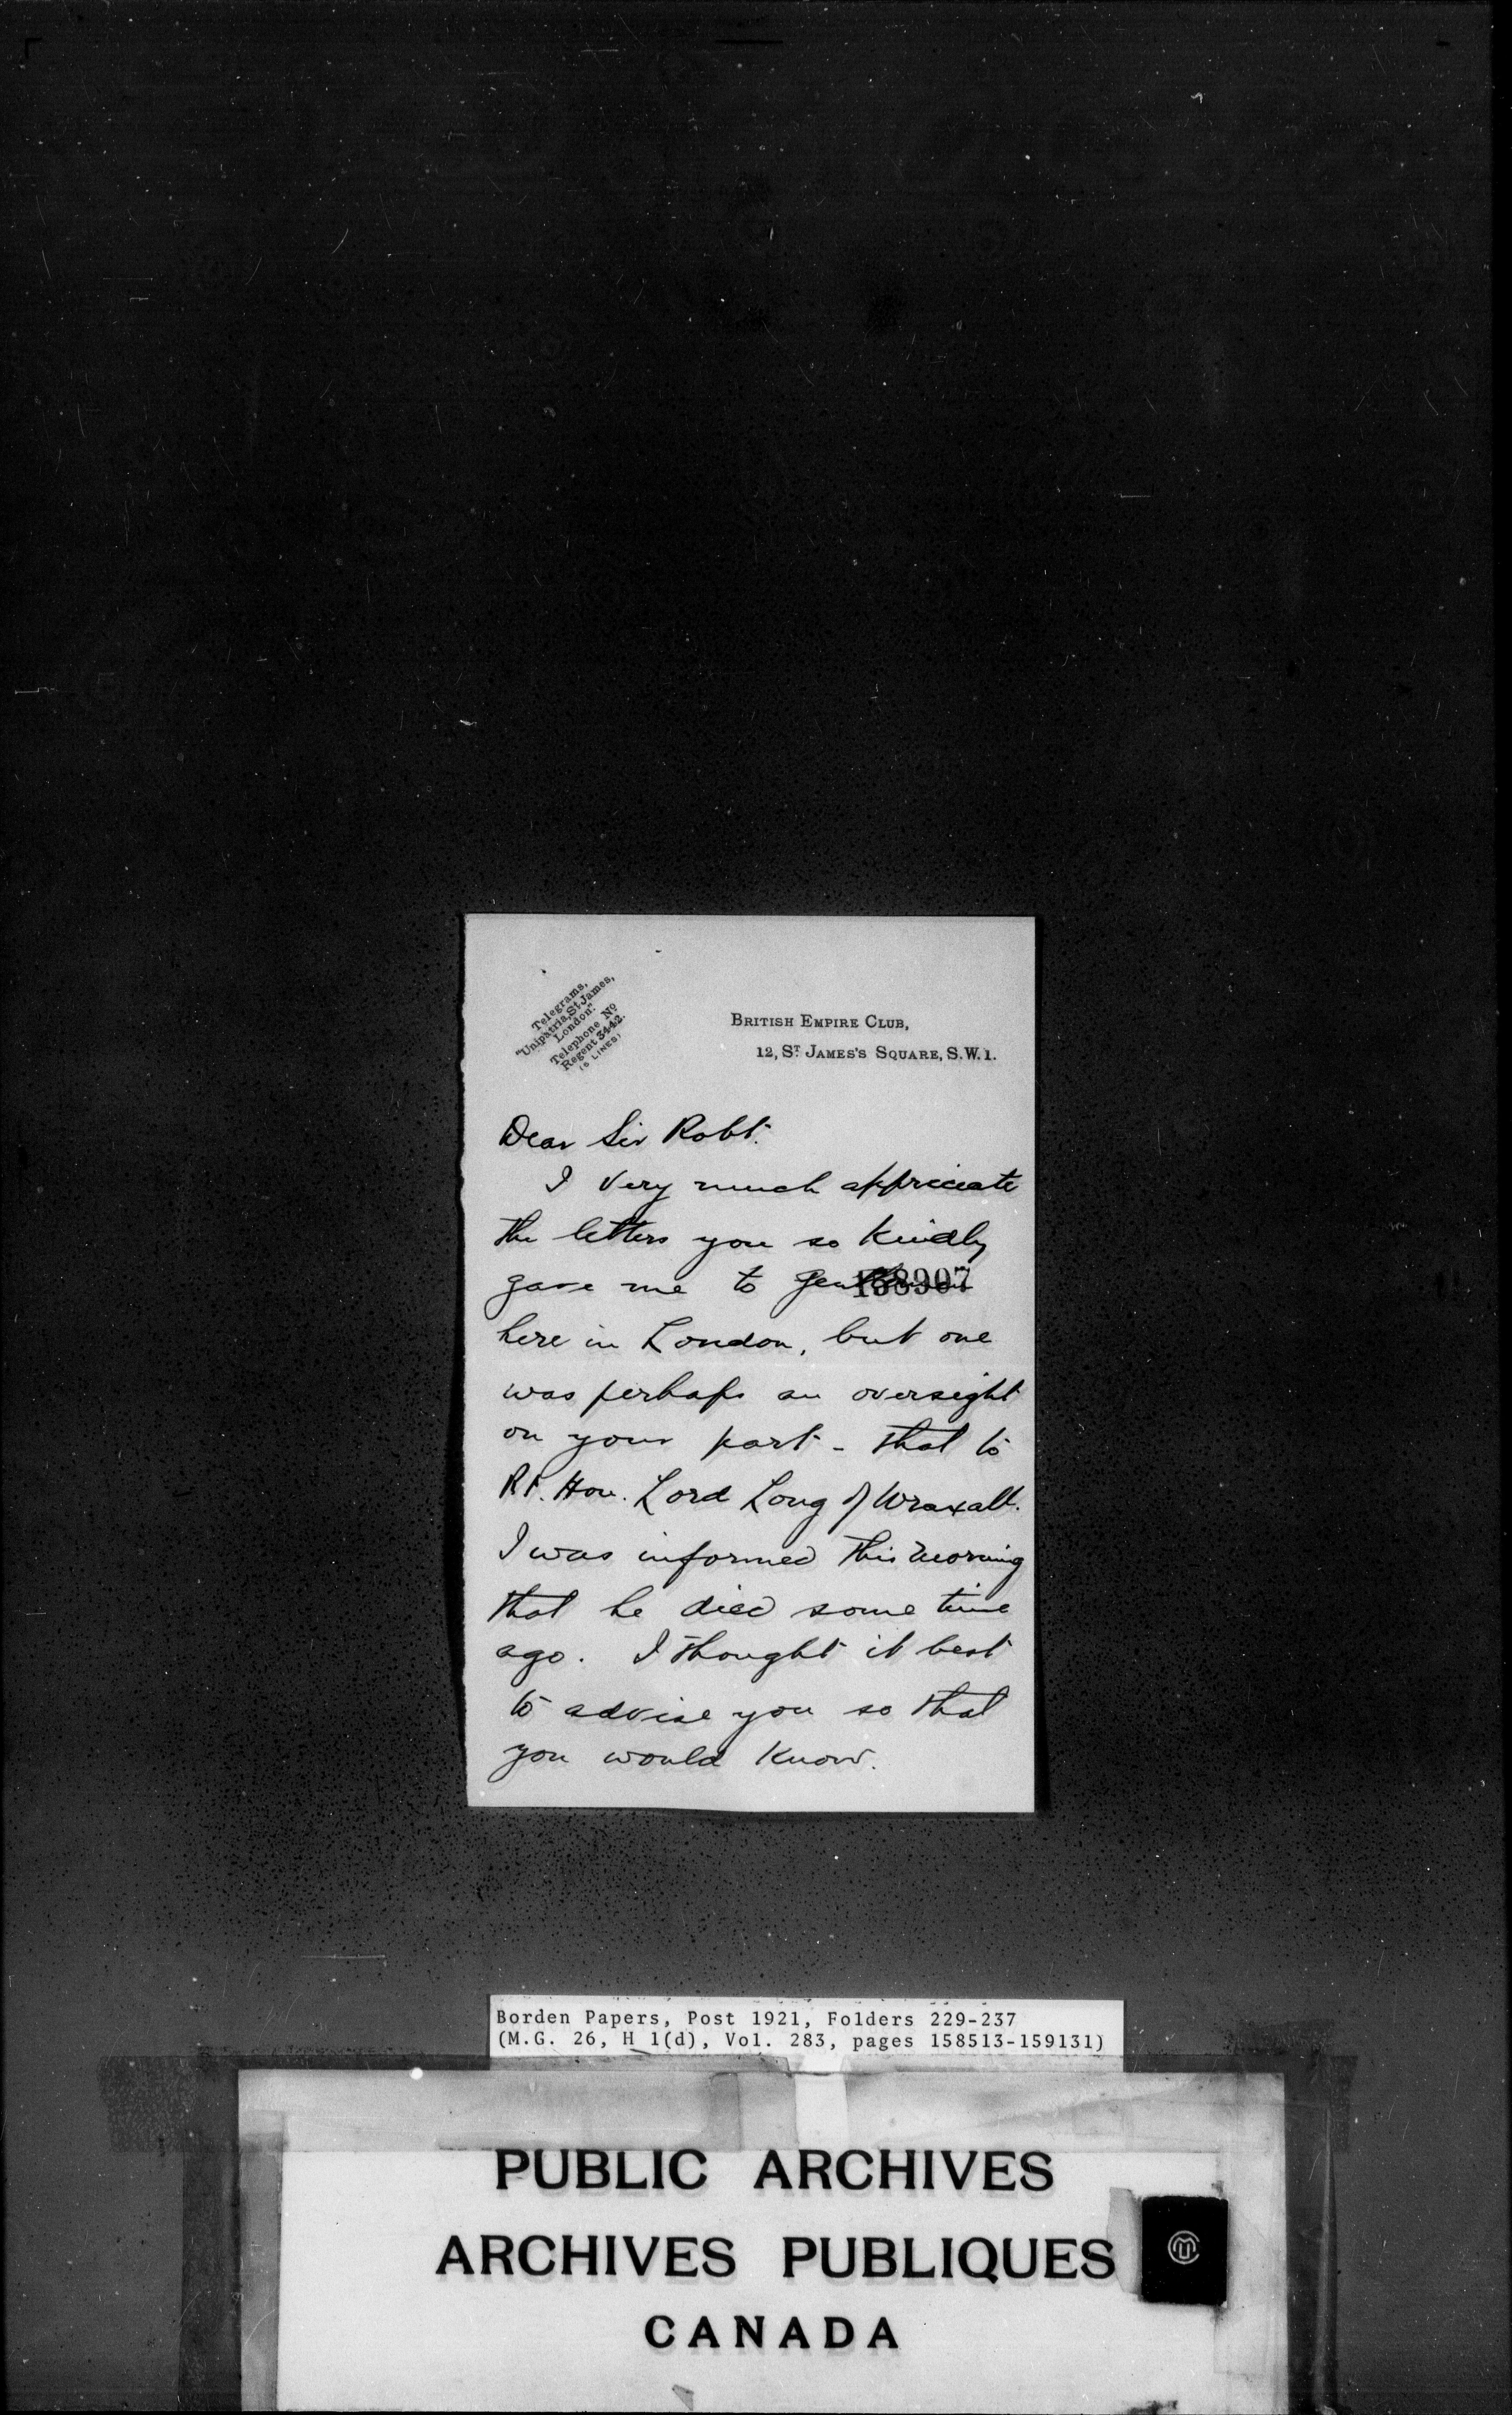 Telegrams,
"Unipatria, St James,
London."
Telephone No
Regent 3442.
(5 LINES)
BRITISH EMPIRE CLUB,
12, ST JAMES'S SQUARE, S.W.1.
Dear Sir Robt.
I very much appreciate
the letters you so kindly
gave me to gentlemen
158907
here in London, but one
was perhaps an oversight
on your part - that to
Rt. Hon. Lord Long of Wraxall.
I was informed this morning
that he died some time
ago. I thought it best
to advise you so that
you would know.
Borden Papers, Post 1921, Folders 229-237
(M.G. 26, H 1(d), Vol. 283, pages 158513-159131)
PUBLIC ARCHIVES
ARCHIVES PUBLIQUES
CANADA